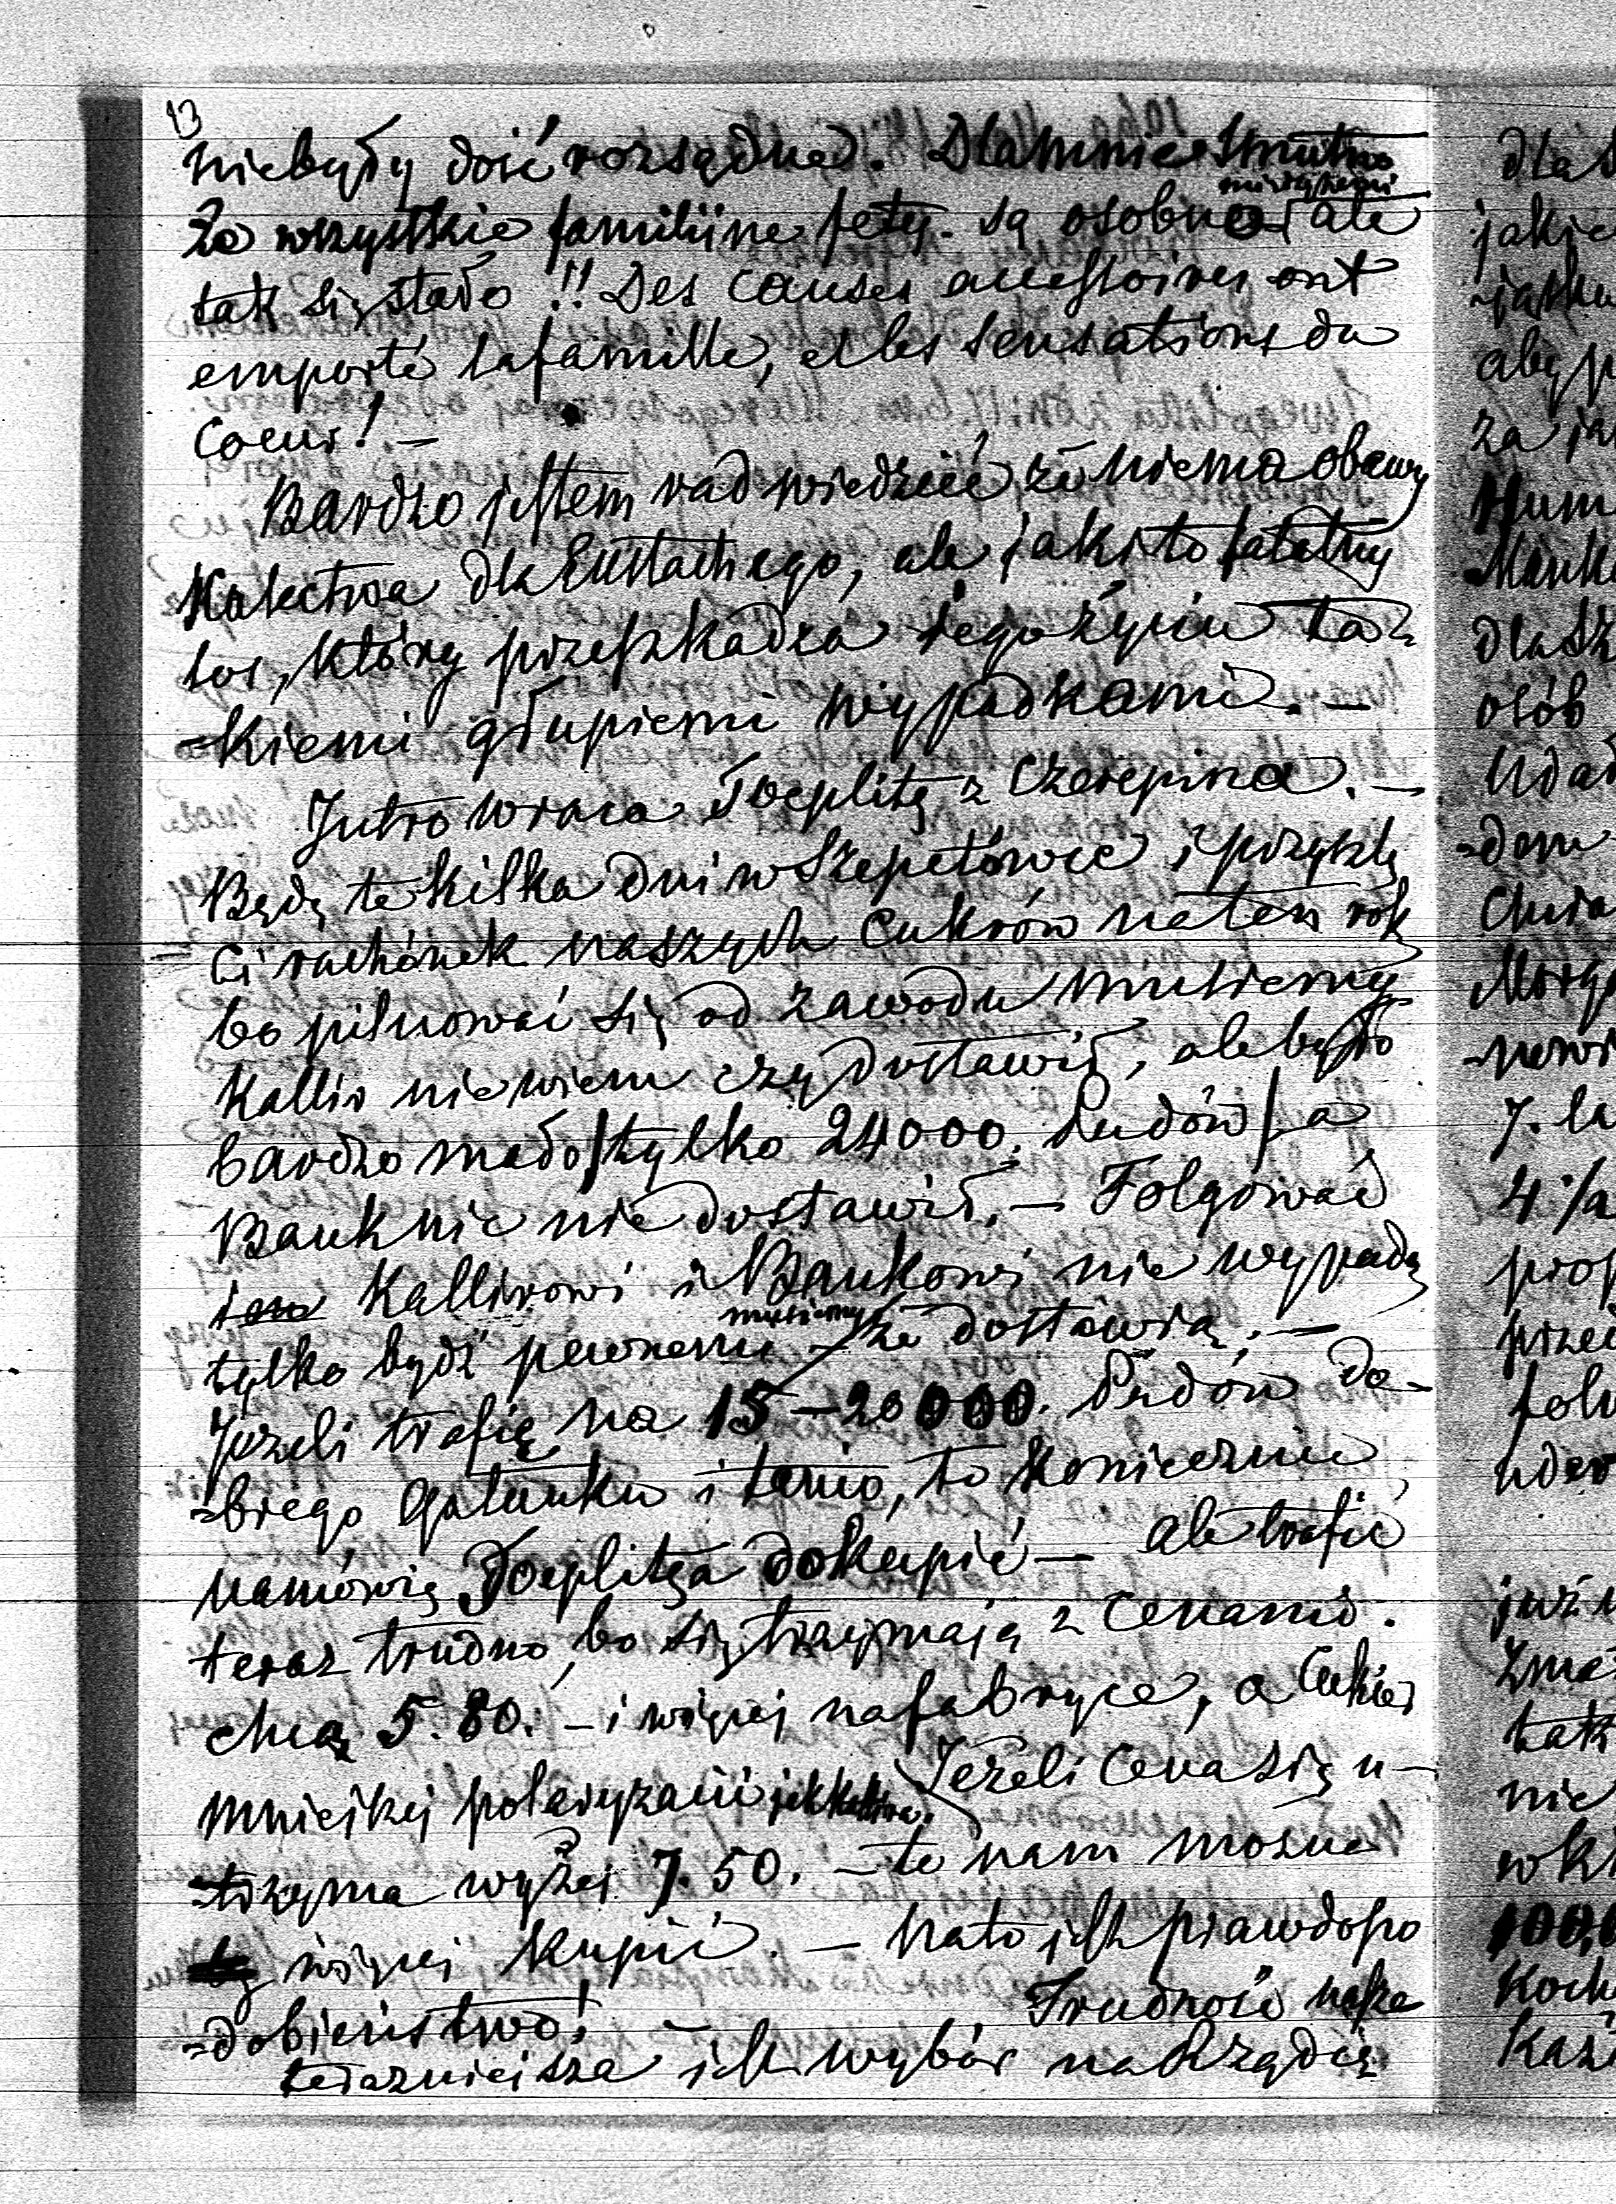 13
niebyły dość rozsądne. Dla mnie smutno
że wszystkie familiine fety są osobno ale
tak się stało!! Des causes accessoires ont
emporté la famille, et les sensations du
coeur! —
Bardzo jestem rad wiedzieć że niema obawy
Kalectwa dla Eustachego, ale jakiś to fatalny
los, który przeszkadza jego życiu ta-
-kiemi głupiemi wypadkami. —
Jutro wraca Toeplitz z Czerepina. —
Będę te kilka dni w Szepetówce i przyszlę
Ci rachónek naszych Cukrów na ten rok
bo pilnować się od zawodu musiemy
Kallir nie wiem czy dostawił, ale było
bardzo mało / tylko 24000. Pudów / a
Bank nic nie dostawił. — Folgować
Kallirowi i Bankowi nie wypada
musiemy
tylko bydź pewnemi że dostawią. —
Jeżeli trafię na 15—20000. Pudów do-
-brego Gatunku i tanio, to koniecznie
namówię Toeplitza dokupić — ale trafić
teraz trudno, bo się trzymają z Cenami.
chcą 5.80. — i więcej na fabryce, a Cukier
mniejszej polaryzacii Jeżeli Cena się u-
-trzyma wyżej 7.50. — to nam można
więcej kupić. — Na to jest prawdopo
-dobieństwo! — Trudność nasza
teraznieisza jest wybór na Rządcę